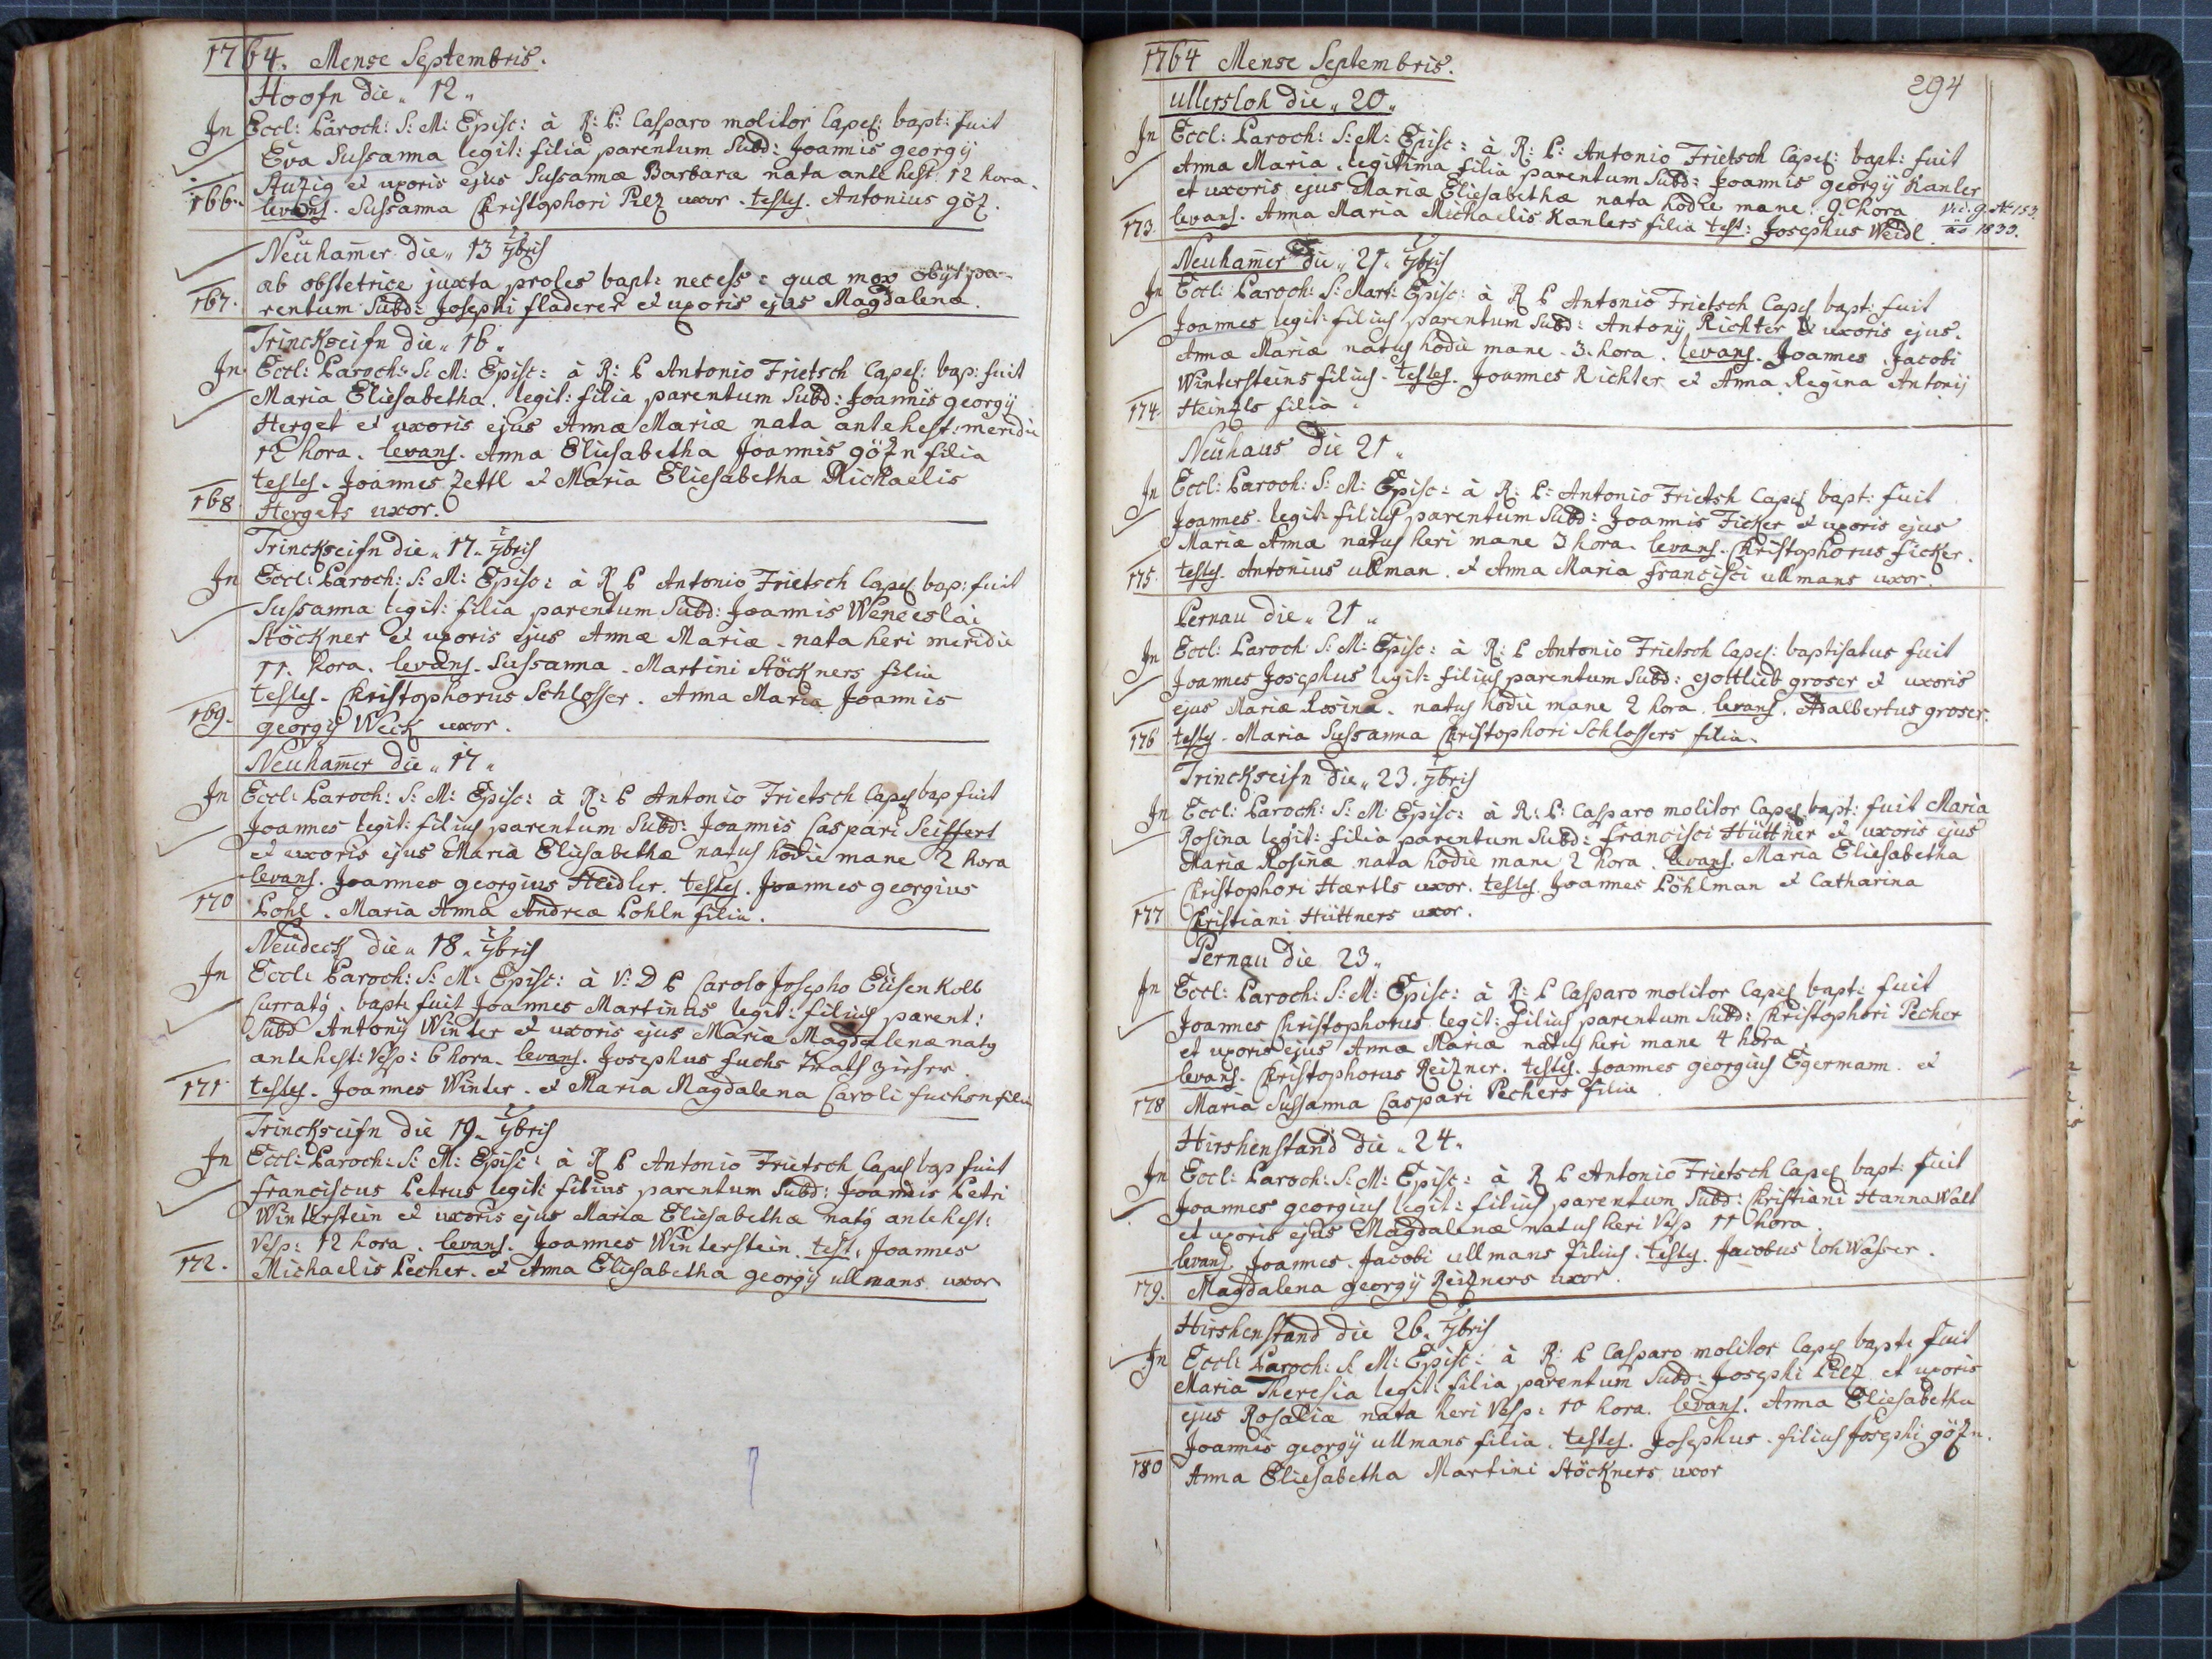 1764. Mense Septembris.
Hoofn die „ 12 „
In Eccl: Paroch: S: M: Episc: à R: P: Casparo molitor Capes: bapt: fuit
Eva Sussanna legit: filia parentum Subd: Joannis georgij
Auzig et uxoris ejus Sussannæ Barbaræ nata antehest: 12 hora.
166. levans. Sussanna Christophori Pilz uxor. testes. Antonius göz.
Neühamer die „ 13 7bris
ab obstetrice juxta proles bapt: necess: quæ mox obijt pa-
167. rentum Subd: Josephi fladerer et uxoris ejus Magdalena.
Trinckseifn die „ 16 „
In Eccl: Paroch: S: M: Episc: à R: P Antonio Frietsch Capes: bap: fuit
Maria Eliesabetha. legit: filia parentum Subd: Joannis georgij
Herget et uxoris ejus Annæ Mariæ nata antehest: meridie
12 hora. levans. Anna Eliesabetha Joannis gözn filia
testes. Joannes Zettl et Maria Eliesabetha Michaelis
168 Hergets uxor.
Trinckseifn die „ 17 „ 7bris
In Eccl: Paroch: S: M: Episc: à R P Antonio Frietsch Capes bap: fuit
Sussanna legit: filia parentum Subd: Joannis Wenceslai
Stöckner et uxoris ejus Annæ Mariæ. nata heri meridie
11. hora. levans. Sussanna. Martini Stöckners filia
testes. Christophorus Schlosser. Anna Maria Joannis
169. georgij Weck uxor.
Neuhamer die „ 17 „
In Eccl: Paroch: S: M: Episc: à R: P Antonio Frietsch Capes bap fuit
Joannes legit: filius parentum Subd: Joannis Caspari Seiffert
et uxoris ejus Mariæ Eliesabethæ natus hodie mane 2 hora
levans. Joannes georgius Heidler. testes. Joannes georgius
170 Pohl. Maria Anna Andreæ Pohln filia.
Neüdeck die „ 18 „ 7bris
In Eccl: Paroch: S: M: Episc: à V: D P Carolo Josepho Eüsenkolb
Curraty. bapt: fuit Joannes Martinus legit: filius parent:
Subd Antonij Winter et uxoris ejus Mariæ Magdalenæ naty
antehest: Vesp: 6 hora. levans. Josephus fuchs Trats zieher.
171 testes. Joannes Winter. et Maria Magdalena Caroli fuchsn filia
Trinckseifn die 19. 7bris
In Eccl: Paroch: S: M: Episc: à R P Antonio Frietsch Capes bap fuit
franciscus Petrus legit: filius parentum Subd: Joannis Petri
Winterstein et uxoris ejus Mariæ Eliesabethæ naty antehest:
Vesp: 12 hora. levans. Joannes Winterstein. test: Joannes
172. Michaelis Pecher. et Anna Eliesabetha georgij ullmans uxor
1764 Mense Septembris.
294
ullersloh die „ 20 „
In Eccl: Paroch: S: M: Episc: à R: P: Antonio Frietsch Capes: bapt: fuit
Anna Maria. legitima filia parentum Subd: Joannis georgij Kanler
et uxoris ejus Mariæ Eliesabethæ nata hodie mane. 9. hora
173. levans. Anna Maria Michaelis Kanlers filia test: Josephus Weidl.
Neuhamer die „ 21. 7bris
In Eccl: Paroch: S: Mart: Episc: à R P Antonio Frietsch Capes bapt: fuit
Joannes legit: filius parentum Subd: Antonij Richter et uxoris ejus.
Annæ Mariæ natus hodie mane. 3. hora. levans. Joannes Jacobi
Wintersteins filius. testes. Joannes Richter et Anna Regina Antonij
174. Heinzls filia
Neühaus die 21 „
In Eccl: Paroch: S: M: Episc: à R: P: Antonio Frietsh Capes bapt: fuit
Joannes. legit: filius parentum Subd: Joannis Ficker et uxoris ejus
Mariæ Annæ natus heri mane 3 hora. levans. Christophorus ficker.
175. testes. Antonius ullman. et Anna Maria francisci ullmans uxor.
Pernau die „ 21 „
In Eccl: Paroch: S: M: Episc: à R: P Antonio Frietsch Capes: baptisatus fuit
Joannes Josephus legit: filius parentum Subd: gottlieb groser et uxoris
ejus Mariæ Rosina. natus hodie mane 2 hora. levans. Adalbertus groser.
176 testes. Maria Sussanna Christophori Schlossers filia.
Trinckseifn die „ 23. 7bris
In Eccl: Paroch: S: M: Episc: à R: P: Casparo molitor Capes bapt: fuit Maria
Rosina legit: filia parentum Subd: francisci Hüttner et uxoris ejus
Mariæ Rosinæ nata hodie mane 2 hora. levans. Maria Eliesabetha
Christophori Hærtls uxor. testes. Joannes Pöhlman et Catharina
177 Christiani Hüttners uxor.
Pernau die 23 „
In Eccl: Paroch: S: M: Episc: à R: P Casparo molitor Capes bapt: fuit
Joannes Christophorus legit: filius parentum Subd: Christophori Pecher
et uxoris ejus Annæ Mariæ natus heri mane 4 hora
levans. Christophorus Reizner. testes. Joannes georgius Egermann. et
178 Maria Sussanna Caspari Pechers filia
Hirshenstand die „ 24 „
In Eccl: Paroch: S: M: Episc: à R P Antonio Frietsch Capes bapt: fuit
Joannes georgius legit: filius parentum Subd: Christiani HannaWalt
et uxoris ejus Magdalenæ natus heri Vesp 11 hora.
levans. Joannes. Jacobi ullmans filius. testes. Jacobus LohWasser.
179. Magdalena georgij Reizners uxor.
Hirshenstand die 26. 7bris
In Eccl: Paroch: S: M: Episc: à R: P Casparo molitor Capes bapt: fuit
Maria Theresia legit: filia parentum Subd: Josephi Pilz et uxoris
ejus Rosaliæ nata heri Vesp: 10 hora. levans. Anna Eliesabetha
Joannis georgij ullmans filia. testes. Josephus. filius Josephi gözn.
180 Anna Eliesabetha Martini Stöckners uxor